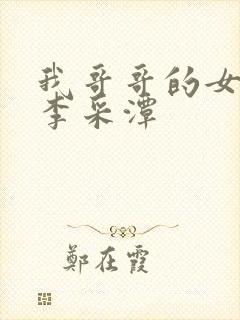 我哥哥的女
李采潭
鄭在霞